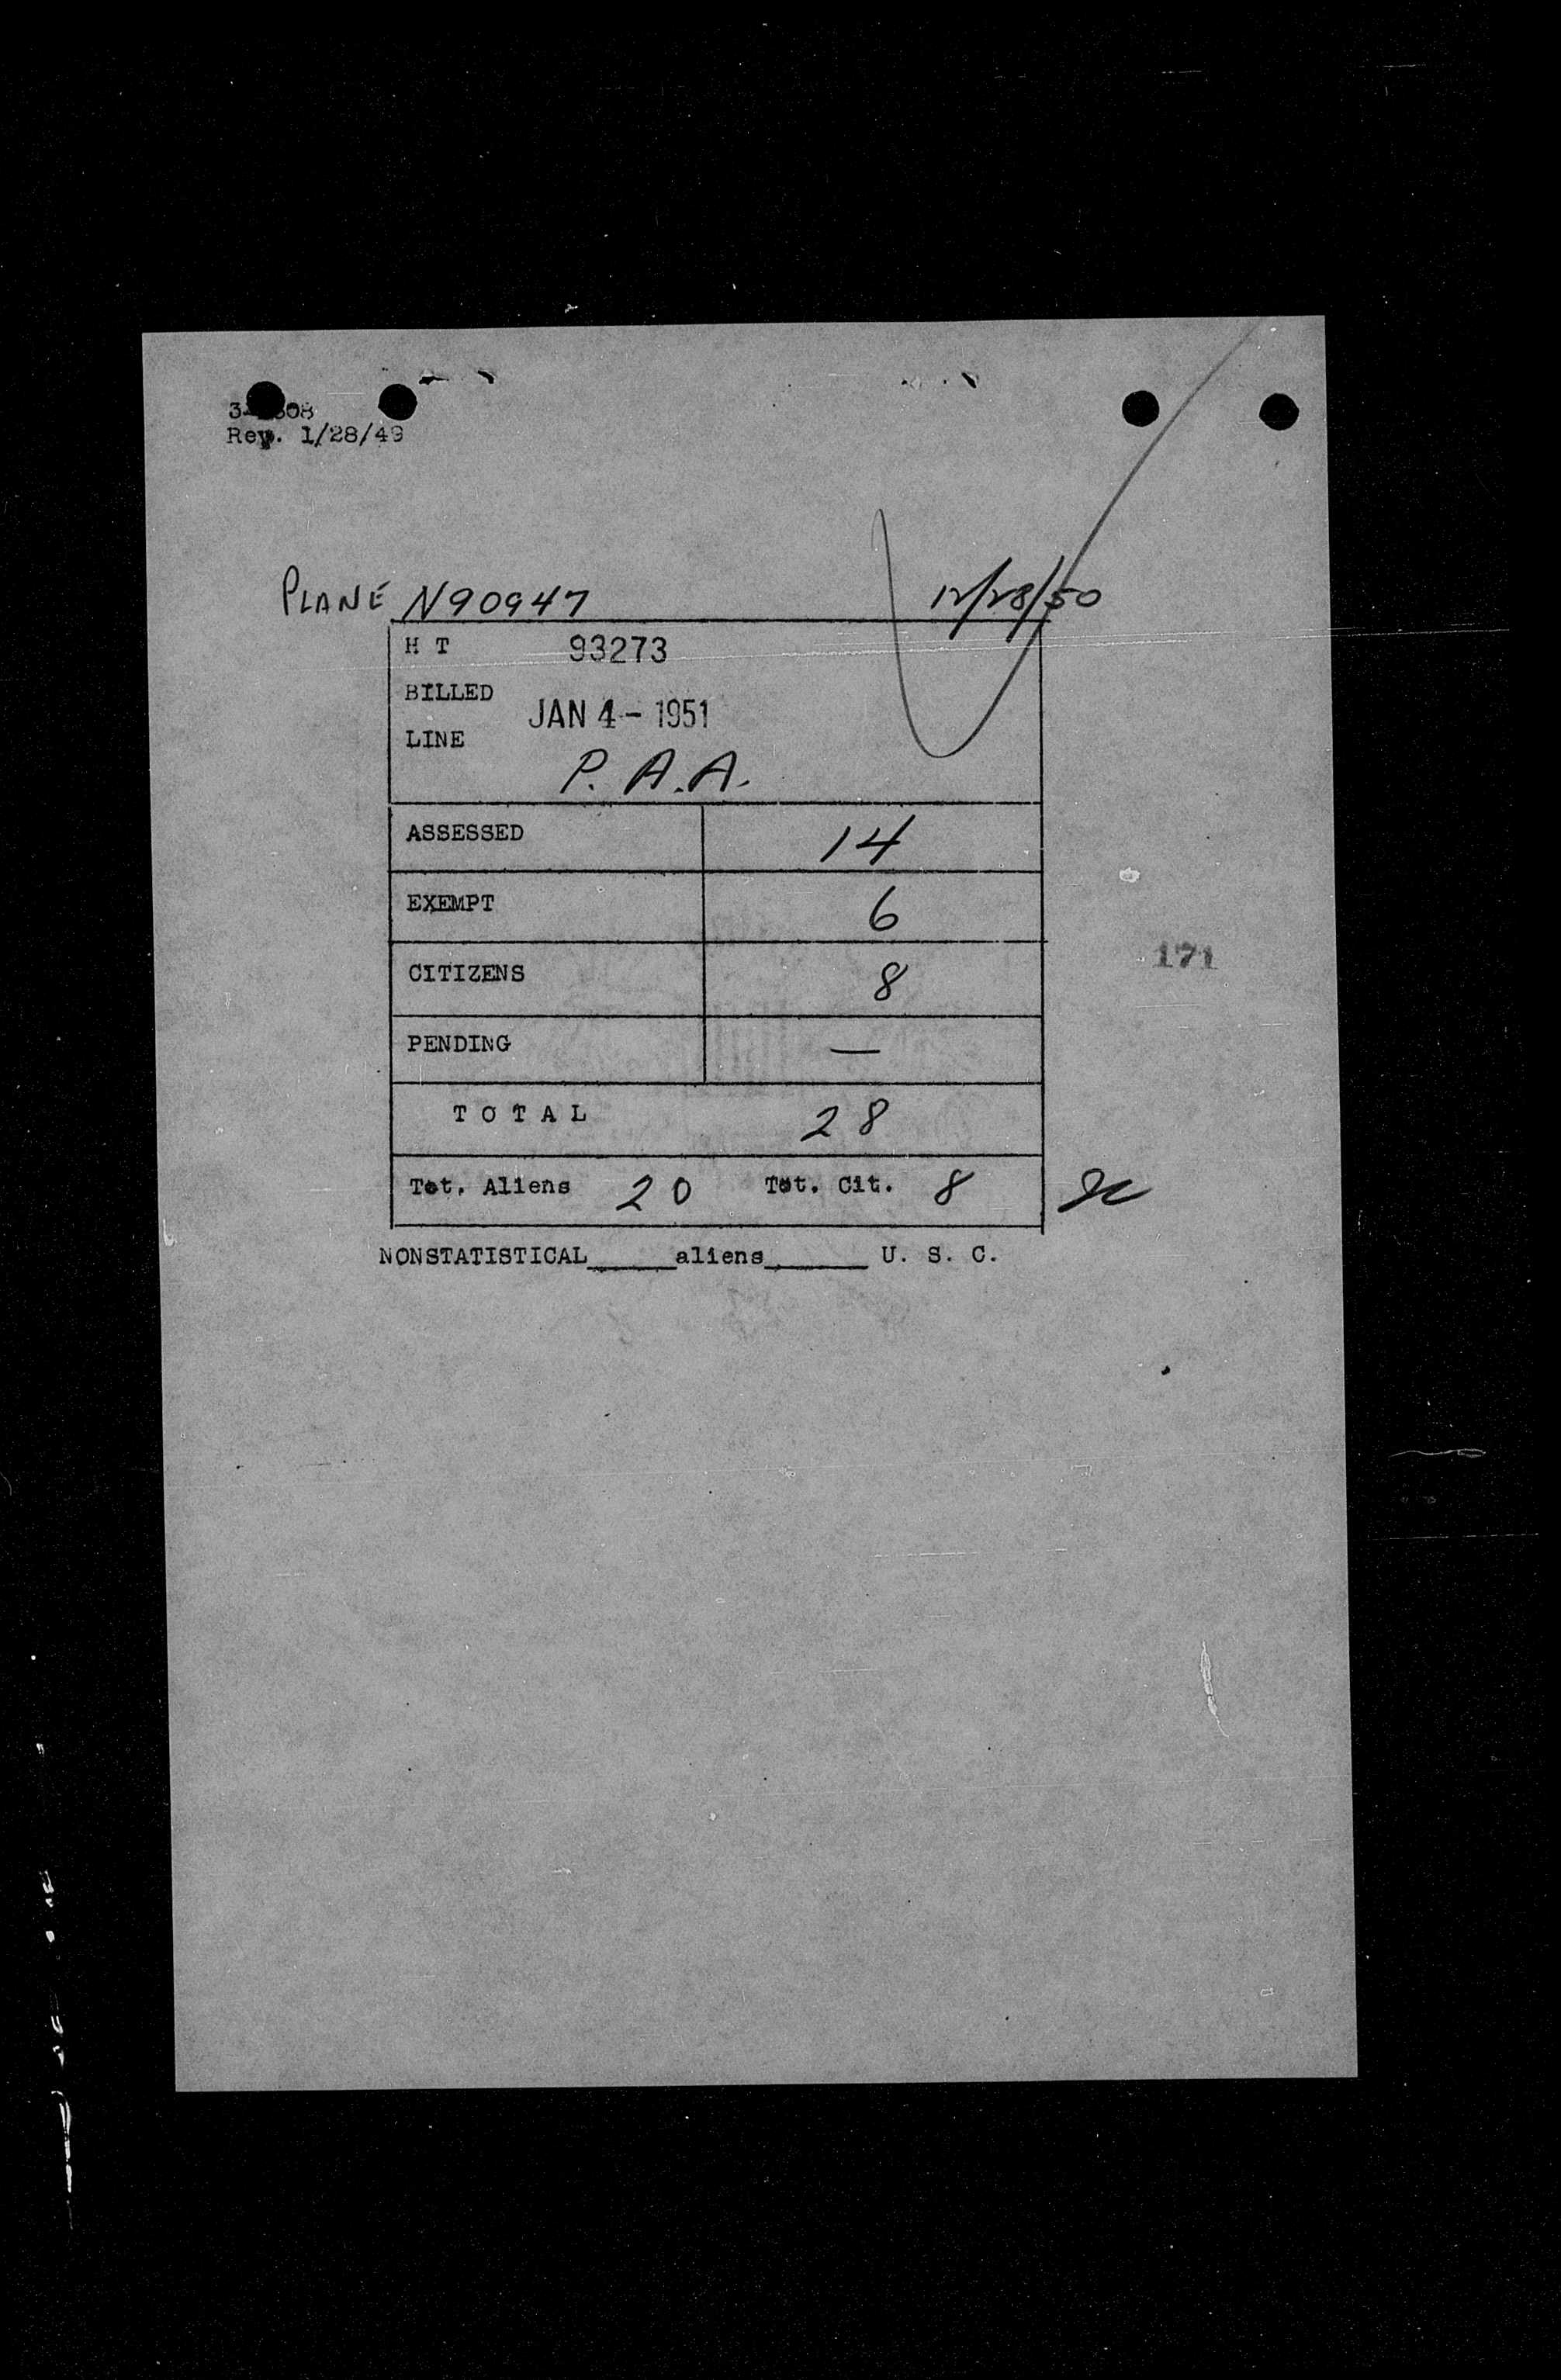 Rev. 1/28/49
PLANE N90947 12/28/50
H T 93273
BILLED
JAN 4 - 1951
LINE
P. A. A.
ASSESSED 14
EXEMPT 6
171
CITIZENS 8
PENDING —
T O T A L 28
Tot. Aliens 20 Tot. Cit. 8
NONSTATISTICAL_____aliens______ U. S. C.